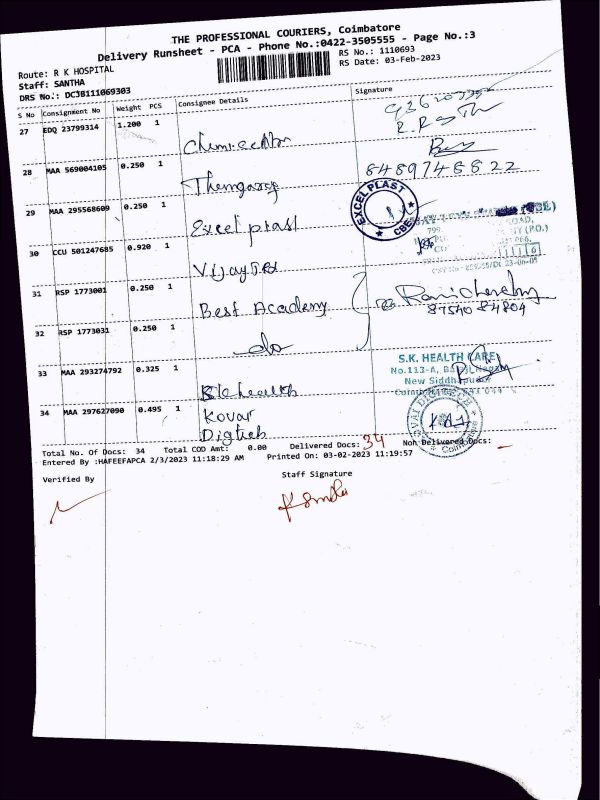 THE PROFESSIONAL COURIERS, Coimbatore
Delivery Runsheet - PCA - Phone No.:0422-3505555 - Page No.:3
Route: R K HOSPITAL
RS No.: 1110693
Staff: SANTHA
RS Date: 03-Feb-2023
DRS No.: DCJB111069303
S No Consignment No Weight PCS Consignee Details Signature
27 EDQ 23799314 1.200 1
28 MAA 569004105 0.250 1
8489748822
29 MAA 295568609 0.250 1 Excel plast
EXCEL PLAST CBE
30 CCU 501247685 0.920 1
31 RSP 1773001 0.250 1 Best Academy
87540 84804
32 RSP 1773031 0.250 1 do
33 MAA 293274792 0.325 1 SK health
S.K. HEALTH CARE
No.113-A,
New Siddhapudur
34 MAA 297627090 0.495 1 Kovai
Total No. Of Docs: 34 Total COD Amt: 0.00 Delivered Docs: 34 Non Delivered Docs: -
Entered By :HAFEEFAPCA 2/3/2023 11:18:29 AM Printed On: 03-02-2023 11:19:57
Verified By
Staff Signature